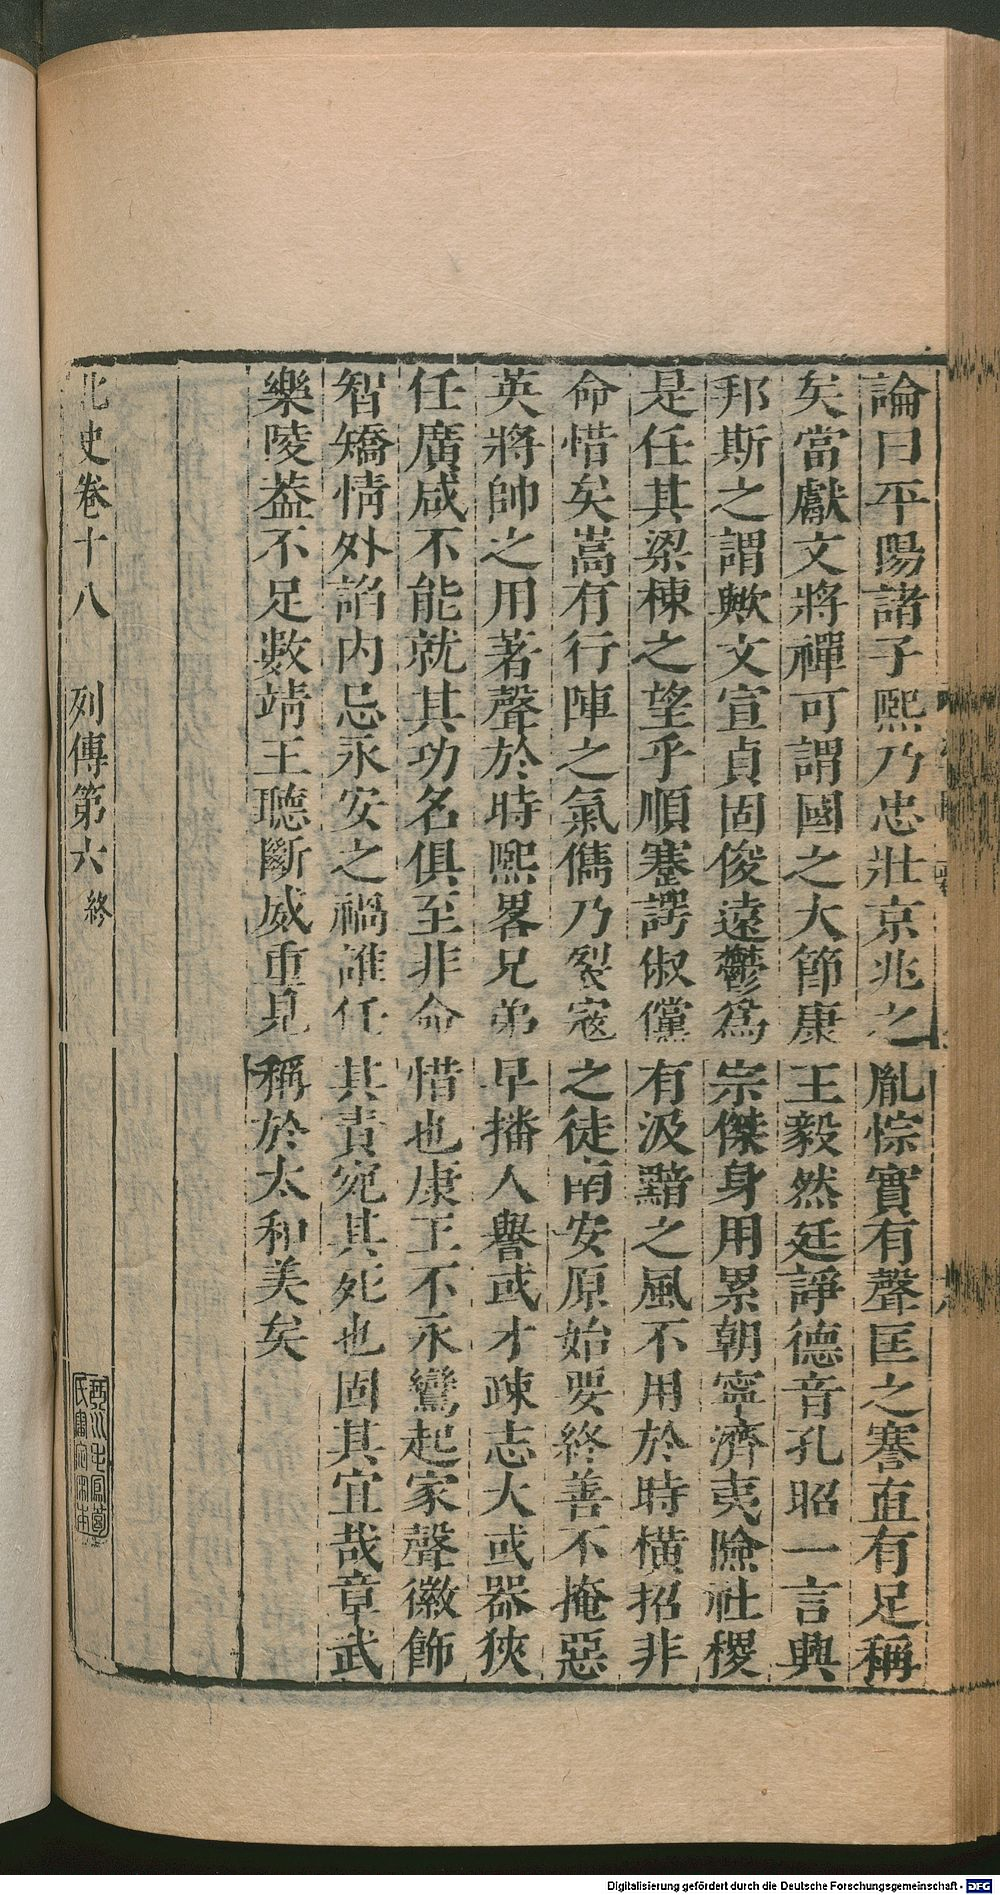 論曰平陽諸子熙乃忠壯京兆之胤悰實有聲匡之謇直有足稱
矣當獻文將禪可謂國之大節康王毅然廷諍德音孔昭一言興
邦斯之謂歟文宣貞固俊遠鬱爲宗傑身用累朝寧濟夷險社稷
是任其梁棟之望乎順蹇諤俶儻有汲黯之風不用於時橫招非
命惜矣嵩有行陣之氣儁乃裂冦之徒南安原始要終善不掩惡
英將帥之用著聲於時熙畧兄弟早播人譽或才疎志大或器狹
任廣咸不能就其功名俱至非命惜也康王不永鸞起家聲徽飾
智矯情外諂内忌永安之禍誰任其責宛其死也固其宜哉章武
樂陵葢不足數靖王聽斷威重見稱於太和美矣
北史卷十八 列傳第六 終
Digitalisierung gefördert durch die Deutsche Forschungsgemeinschaft - DFG